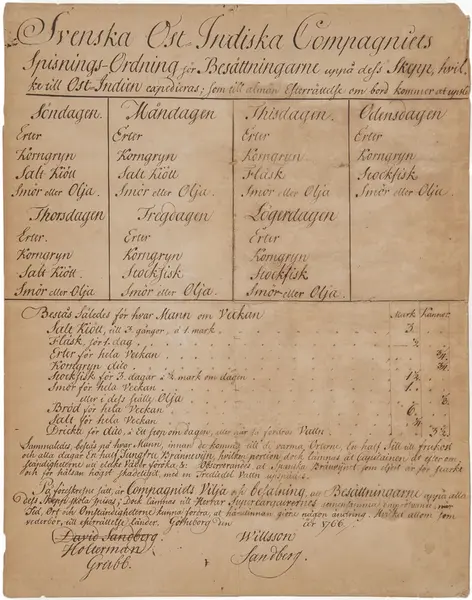 Svenska Ost-Indiska Compagniets
Spisnings-Ordning för Besättningarne uppå dess Skepp, hvil-
ke till Ost-Indien expedieras; som till allmän efterrättelse om bord kommer at
Söndagen Måndagen Thisdagen Odensdagen
Erter Erter Erter Erter
Korngryn Korngryn Korngryn Korngryn
Salt Kiött Salt Kiött Fläsk Stockfisk
Smör eller Olja Smör eller Olja. Smör eller Olja Smör eller Olja.
Thorsdagen Fregdagen Lögerdagen
Erter. Erter Erter
Korngryn Korngryn Korngryn
Salt Kiött. Stockfisk Stockfisk
Smör eller Olja Smör eller Olja. Smör eller Olja.
Bestås Således för hvar Mann om Veckan Mark Kannor
Salt Kiött, till 3 gånger, à 1 mark 3
Fläsk för 1 dag ½
Erter för hela Veckan
Korngryn dito
Stockfisk för 3 dagar à ½ mark om dagen 1½
Smör för hela Veckan 1
eller i dess ställe Olja
Bröd för hela Veckan 6
Salt för hela Veckan
Dricka för dito, à ett stop om dagen, eller när så fordras Vattn 3½
Sammaledes, bestås på hvar Mann, innan de komma till de varma Orterne, En half till frukost
och alla dagar En half Jungfru Brännevijn, hvilken portion dock lämnas at Capitainen,
och för hälsan högst skadeligit, med en Tredjedel Vattn
På förestående sätt, är Compagniets Vilja och befalning, att Besättningarne uppå alla
Dess Skepp måga spisas; Dock lämnes till Herrar Supercargeurernes
Tid, Ort och Omständigheterne kunna fordra, at härutinnan göra någon ändring. allom som
vederbör, till efterrättelse länder. Götheborg den år 1766.
David Sandberg. Willsson
Holterman Sandberg.
Grubb.